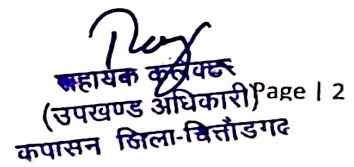 सहायक कलेक्टर
(उपखण्ड अधिकारी) Page | 2
कपासन जिला-चित्तौडगढ